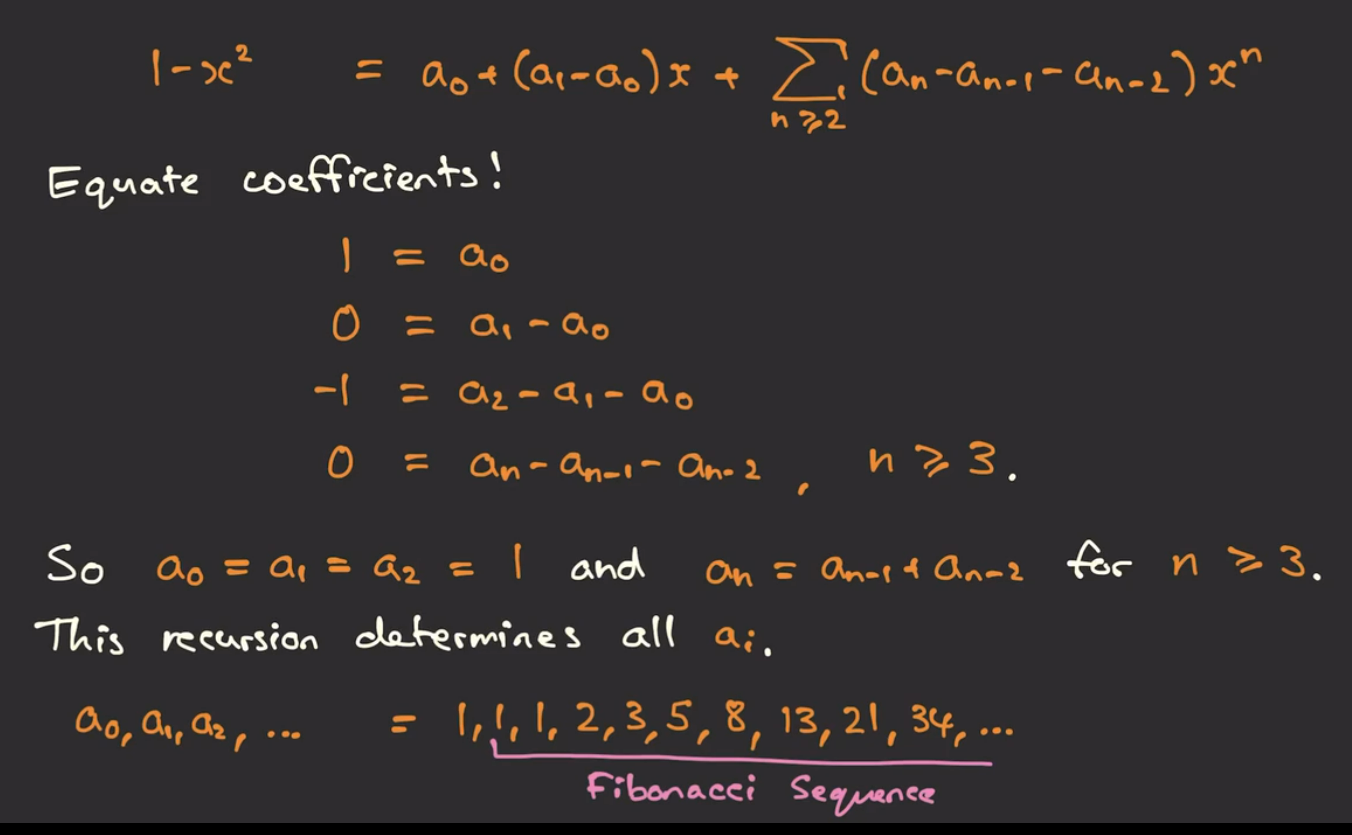 1-x² = a₀+(a₁-a₀)x + ∑ (aₙ-aₙ₋₁-aₙ₋₂)xⁿ
n⩾2
Equate coefficients!
1 = a₀
0 = a₁-a₀
-1 = a₂-a₁-a₀
0 = aₙ-aₙ₋₁-aₙ₋₂, n⩾3.
So a₀=a₁=a₂=1 and aₙ=aₙ₋₁+aₙ₋₂ for n⩾3.
This recursion determines all aᵢ.
a₀,a₁,a₂,... = 1,1,1,2,3,5,8,13,21,34,...
Fibonacci Sequence